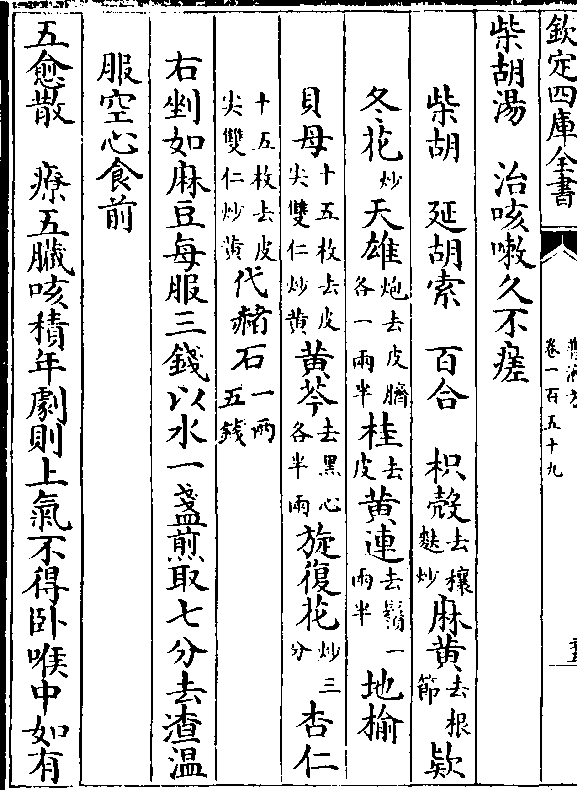 欽定四庫全書
普濟方
卷一百五十九
柴胡湯 治咳嗽久不瘥
柴胡 延胡索 百合 枳殼去穰麩炒 麻黄去根節 欵
冬花炒 天雄炮去皮臍各一兩半 桂去皮 黄連去鬚一兩半 地榆
貝母十五枚去皮尖雙仁炒黄 黄芩去黑心各半兩 旋復花炒三分 杏仁
十五枚去皮尖雙仁炒黄 代赭石一兩五錢
右剉如麻豆每服三錢以水一盞煎取七分去渣温
服空心食前
五愈散 療五臟咳積年劇則上氣不得卧喉中如有